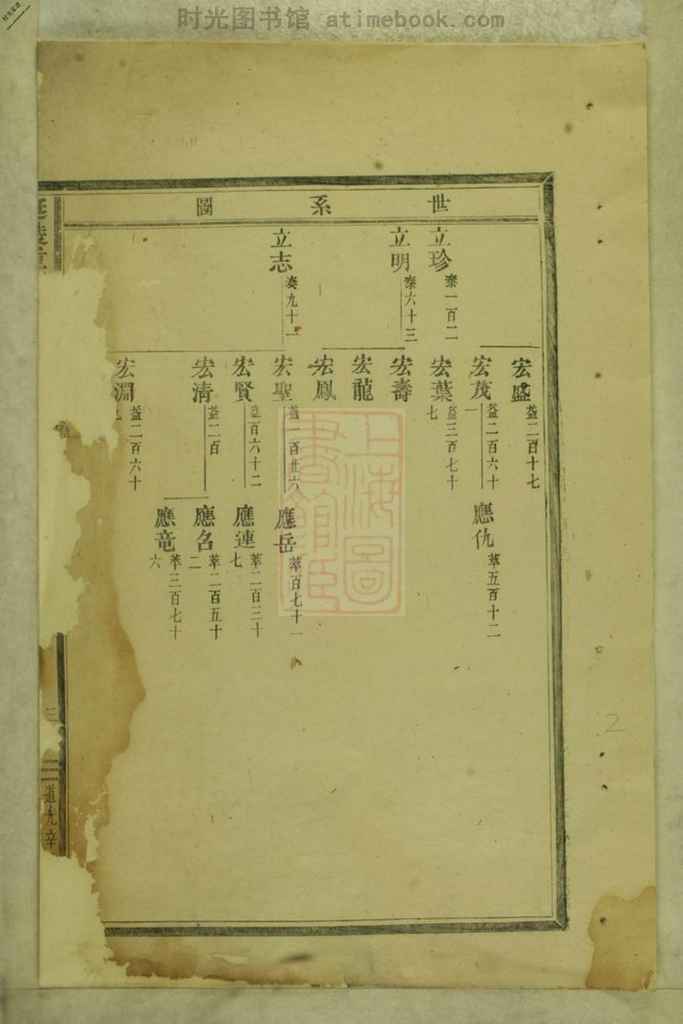 时光图书馆 atimebook.com
世系圖
立珍
秦一百二
立明
秦六十三
立志
秦九十一
宏盛
益二百十七
宏茂
益二百六十一
宏葉
益三百七十七
宏壽
宏龍
宏鳳
宏聖
益一百廿六
宏賢
益百六十二
宏清
益二百
宏淵
益二百六十
應仇
萃五百十二
應岳
萃百七十一
應連
萃二百三十七
應名
萃二百五十二
應竜
萃三百七十六
三
道光辛
上海圖書館藏
2